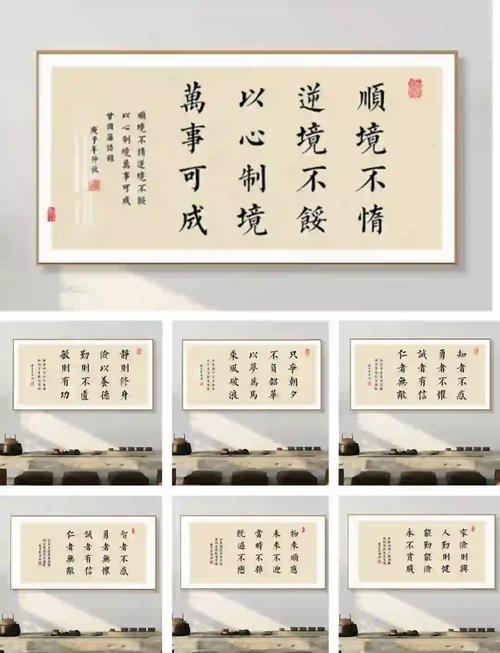 順境不惰
逆境不餒
以心制境
萬事可成
順境不惰逆境不餒
以心制境萬事可成
國藩語錄
庚子年仲秋
靜則修身
儉以養德
勤則不匱
敏則有功
只爭朝夕
不負韶華
以夢為馬
乘風破浪
知者不惑
勇者不懼
誠者有信
仁者無敵
智者不惑
勇者無懼
誠者有信
仁者無敵
物來順應
未來不迎
當時不雜
既過不戀
家儉則興
人勤則健
能勤能儉
永不貧賤